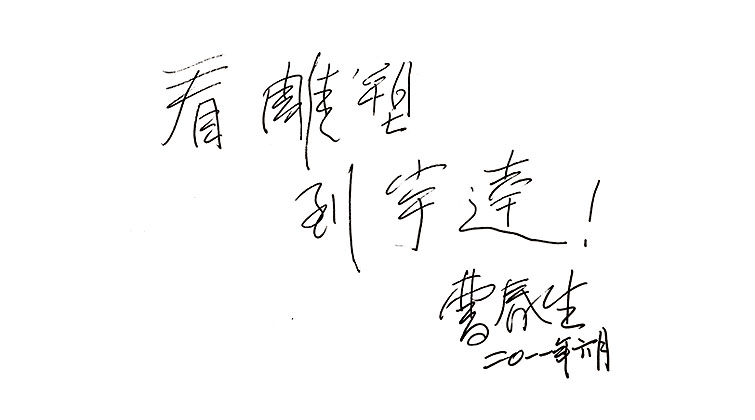 看雕塑
到宇达！
曹春生
二〇一一年六月